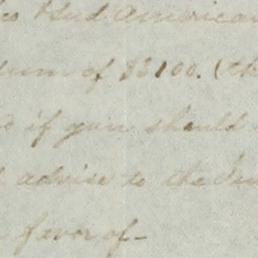 American
sum of $3100. (th
if you should
advise to the
favor of-